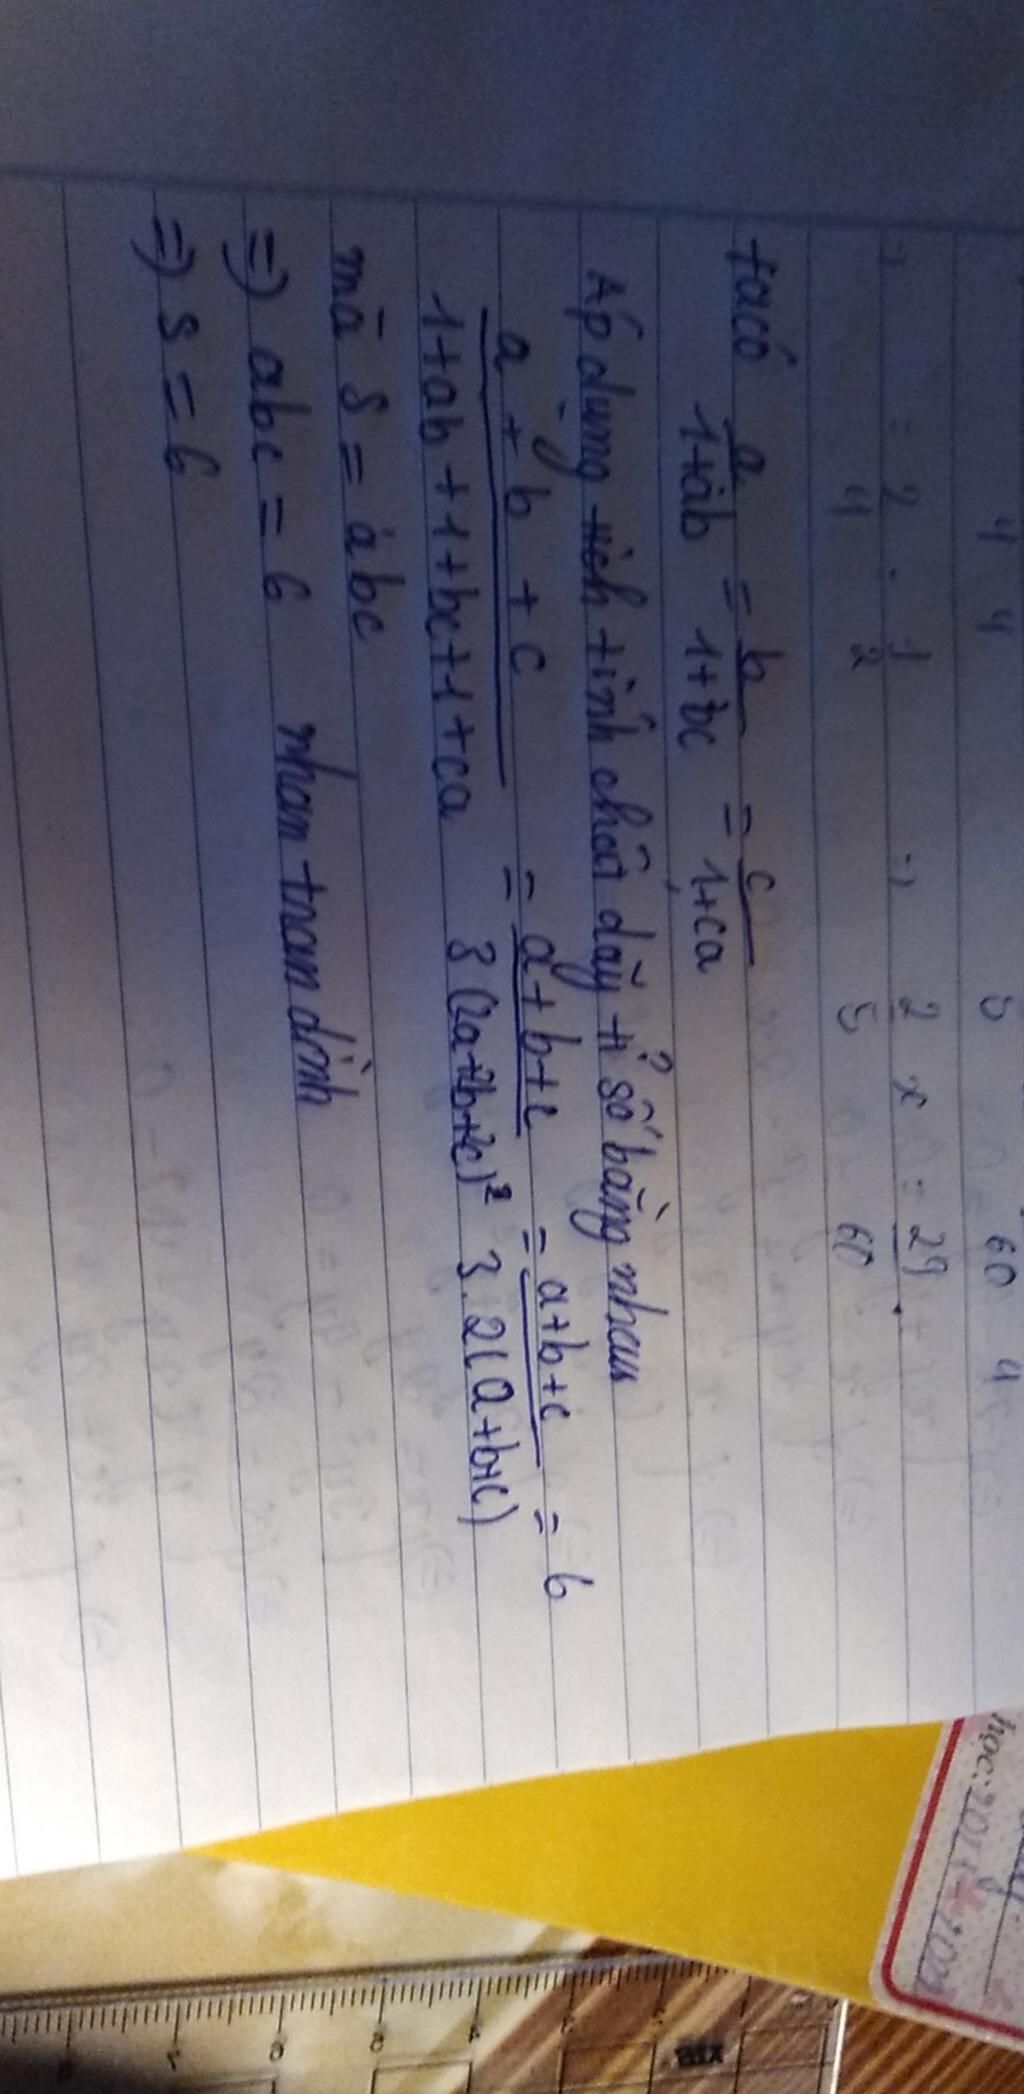 4 4 5 60 4
= 2/4 . 1/2 => 2/5 x = 29/60
ta có a/1+ab = b/1+bc = c/1+ca
Áp dụng tính chất dãy tỉ số bằng nhau
a + b + c/1+ab+1+bc+1+ca = a+b+c/3(2a+2b+2c)² = a+b+c/3.2(a+b+c) = 6
mà S = abc
=> abc = 6 nhan tram dinh
=> S = 6
học: 202